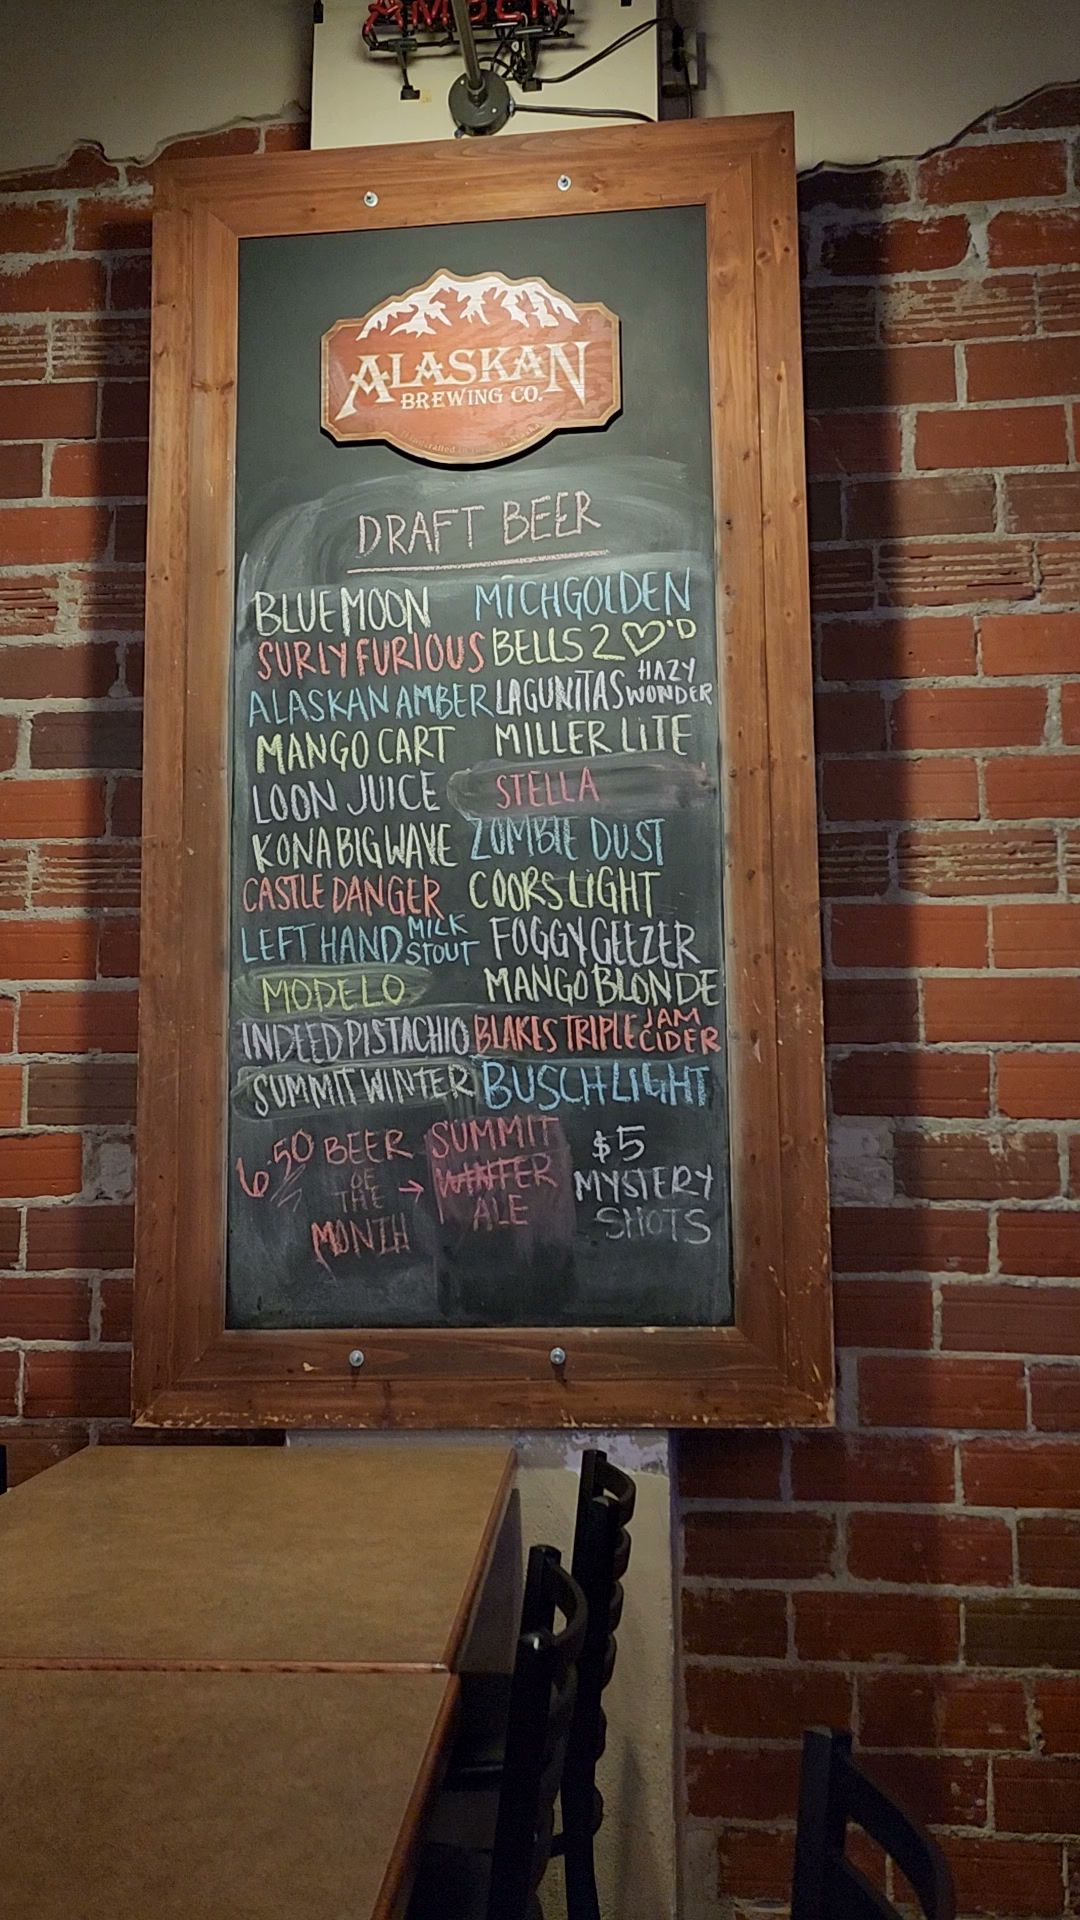 ALASKAN
BREWING CO.
DRAFT BEER
BLUE MOON
SURLY FURIOUS
ALASKAN AMBER
MANGO CART
LOON JUICE
KONA BIG WAVE
CASTLE DANGER
LEFT HAND MILK STOUT
MODELO
INDEED PISTACHIO
SUMMIT WINTER
MICHGOLDEN
BELLS 2 ♡'D
LAGUNITAS HAZY WONDER
MILLER LITE
STELLA
ZOMBIE DUST
COORS LIGHT
FOGGY GEEZER
MANGO BLONDE
BLAKES TRIPLE JAM CIDER
BUSCH LIGHT
6.50 BEER
OF
THE →
MONTH
SUMMIT
WINTER
ALE
$5
MYSTERY
SHOTS